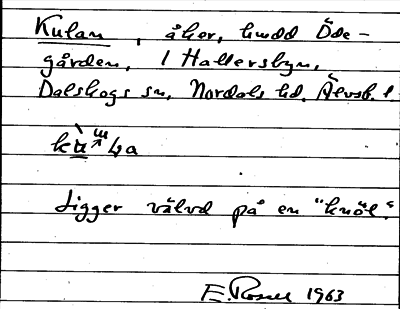 Kulan, åker, hmdd Öde-
gården, 1 Hallersbyn,
Dalskogs sn, Nordals hd. Älvsb. l
Ligger välvd på en "knöl".
E. Rosell 1963